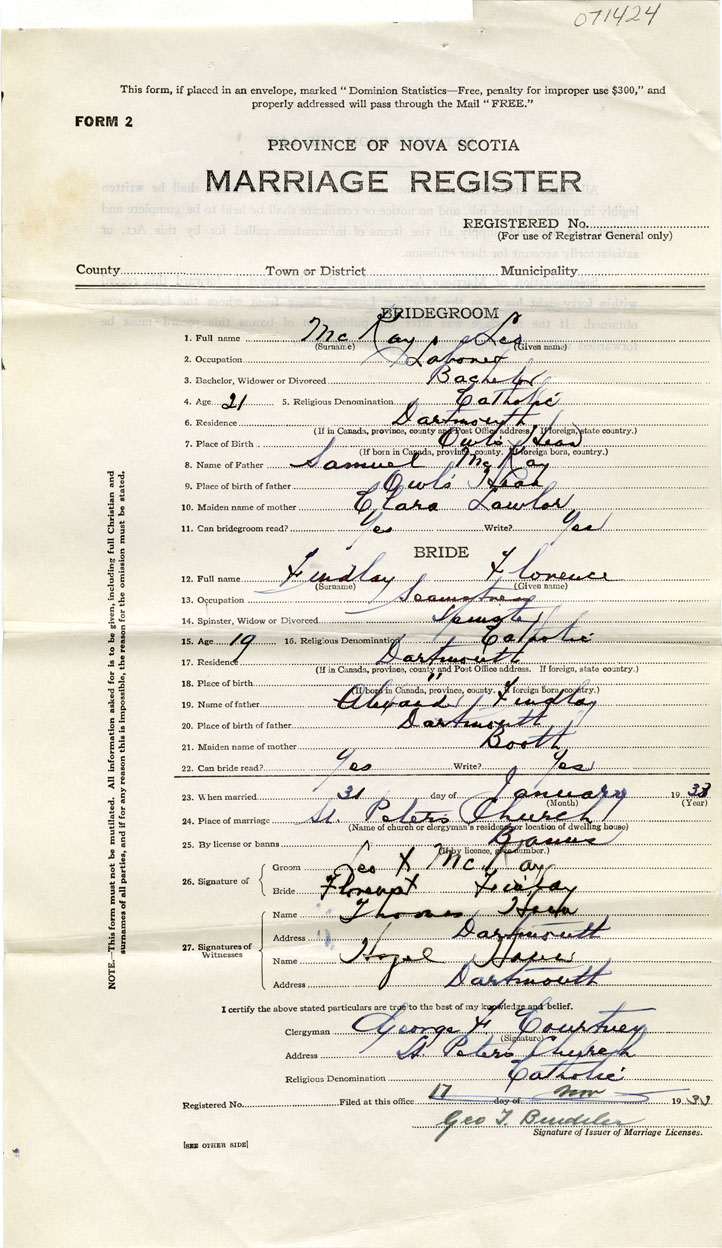 071424
This form, if placed in an envelope, marked "Dominion Statistics—Free, penalty for improper use $300," and
properly addressed will pass through the Mail "FREE."
FORM 2
PROVINCE OF NOVA SCOTIA
MARRIAGE REGISTER
REGISTERED No.
(For use of Registrar General only)
County Town or District Municipality
BRIDEGROOM
1. Full name McKay Leo
(Surname) (Given name)
2. Occupation Laborer
3. Bachelor, Widower or Divorced Bachelor
4. Age 21 5. Religious Denomination Catholic
6. Residence Dartmouth
(If in Canada, province, county and Post Office address. If foreign, state country.)
7. Place of Birth Owls Head
(If born in Canada, province, county. If foreign born, country.)
8. Name of Father Samuel McKay
9. Place of birth of father Owls Head
10. Maiden name of mother Clara Lawlor
11. Can bridegroom read? Yes Write? Yes
BRIDE
12. Full name Findlay Florence
(Surname) (Given name)
13. Occupation Seamstress
14. Spinster, Widow or Divorced Spinster
15. Age 19 16. Religious Denomination Catholic
17. Residence Dartmouth
(If in Canada, province, county and Post Office address. If foreign, state country.)
18. Place of birth "
(If born in Canada, province, county. If foreign born, country.)
19. Name of father Findlay
20. Place of birth of father Dartmouth
21. Maiden name of mother Booth
22. Can bride read? Yes Write? Yes
23. When married 31 day of January 1933
(Month) (Year)
24. Place of marriage St. Peters Church
(Name of church or clergyman's residence or location of dwelling house)
25. By license or banns Banns
(If by licence, give number.)
26. Signature of Groom Leo X McKay
Bride Findlay
27. Signatures of Witnesses Name Thomas
Address Dartmouth
Name Hazel
Address Dartmouth
I certify the above stated particulars are true to the best of my knowledge and belief.
Clergyman George F. Courtney
(Signature)
Address St. Peters Church
Religious Denomination Catholic
Registered No. Filed at this office 17 day of Nov 1933
Geo T.
Signature of Issuer of Marriage Licenses.
[SEE OTHER SIDE]
NOTE.—This form must not be mutilated. All information asked for is to be given, including full Christian and
surnames of all parties, and if for any reason this is impossible, the reason for the omission must be stated.